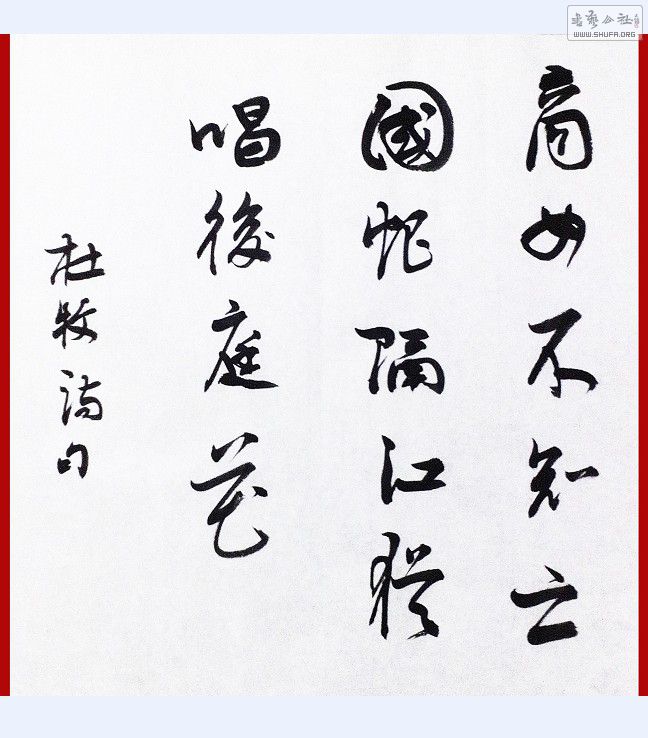 商女不知亡
國恨隔江猶
唱後庭花
杜牧詩句
書藝公社
WWW.SHUFA.ORG